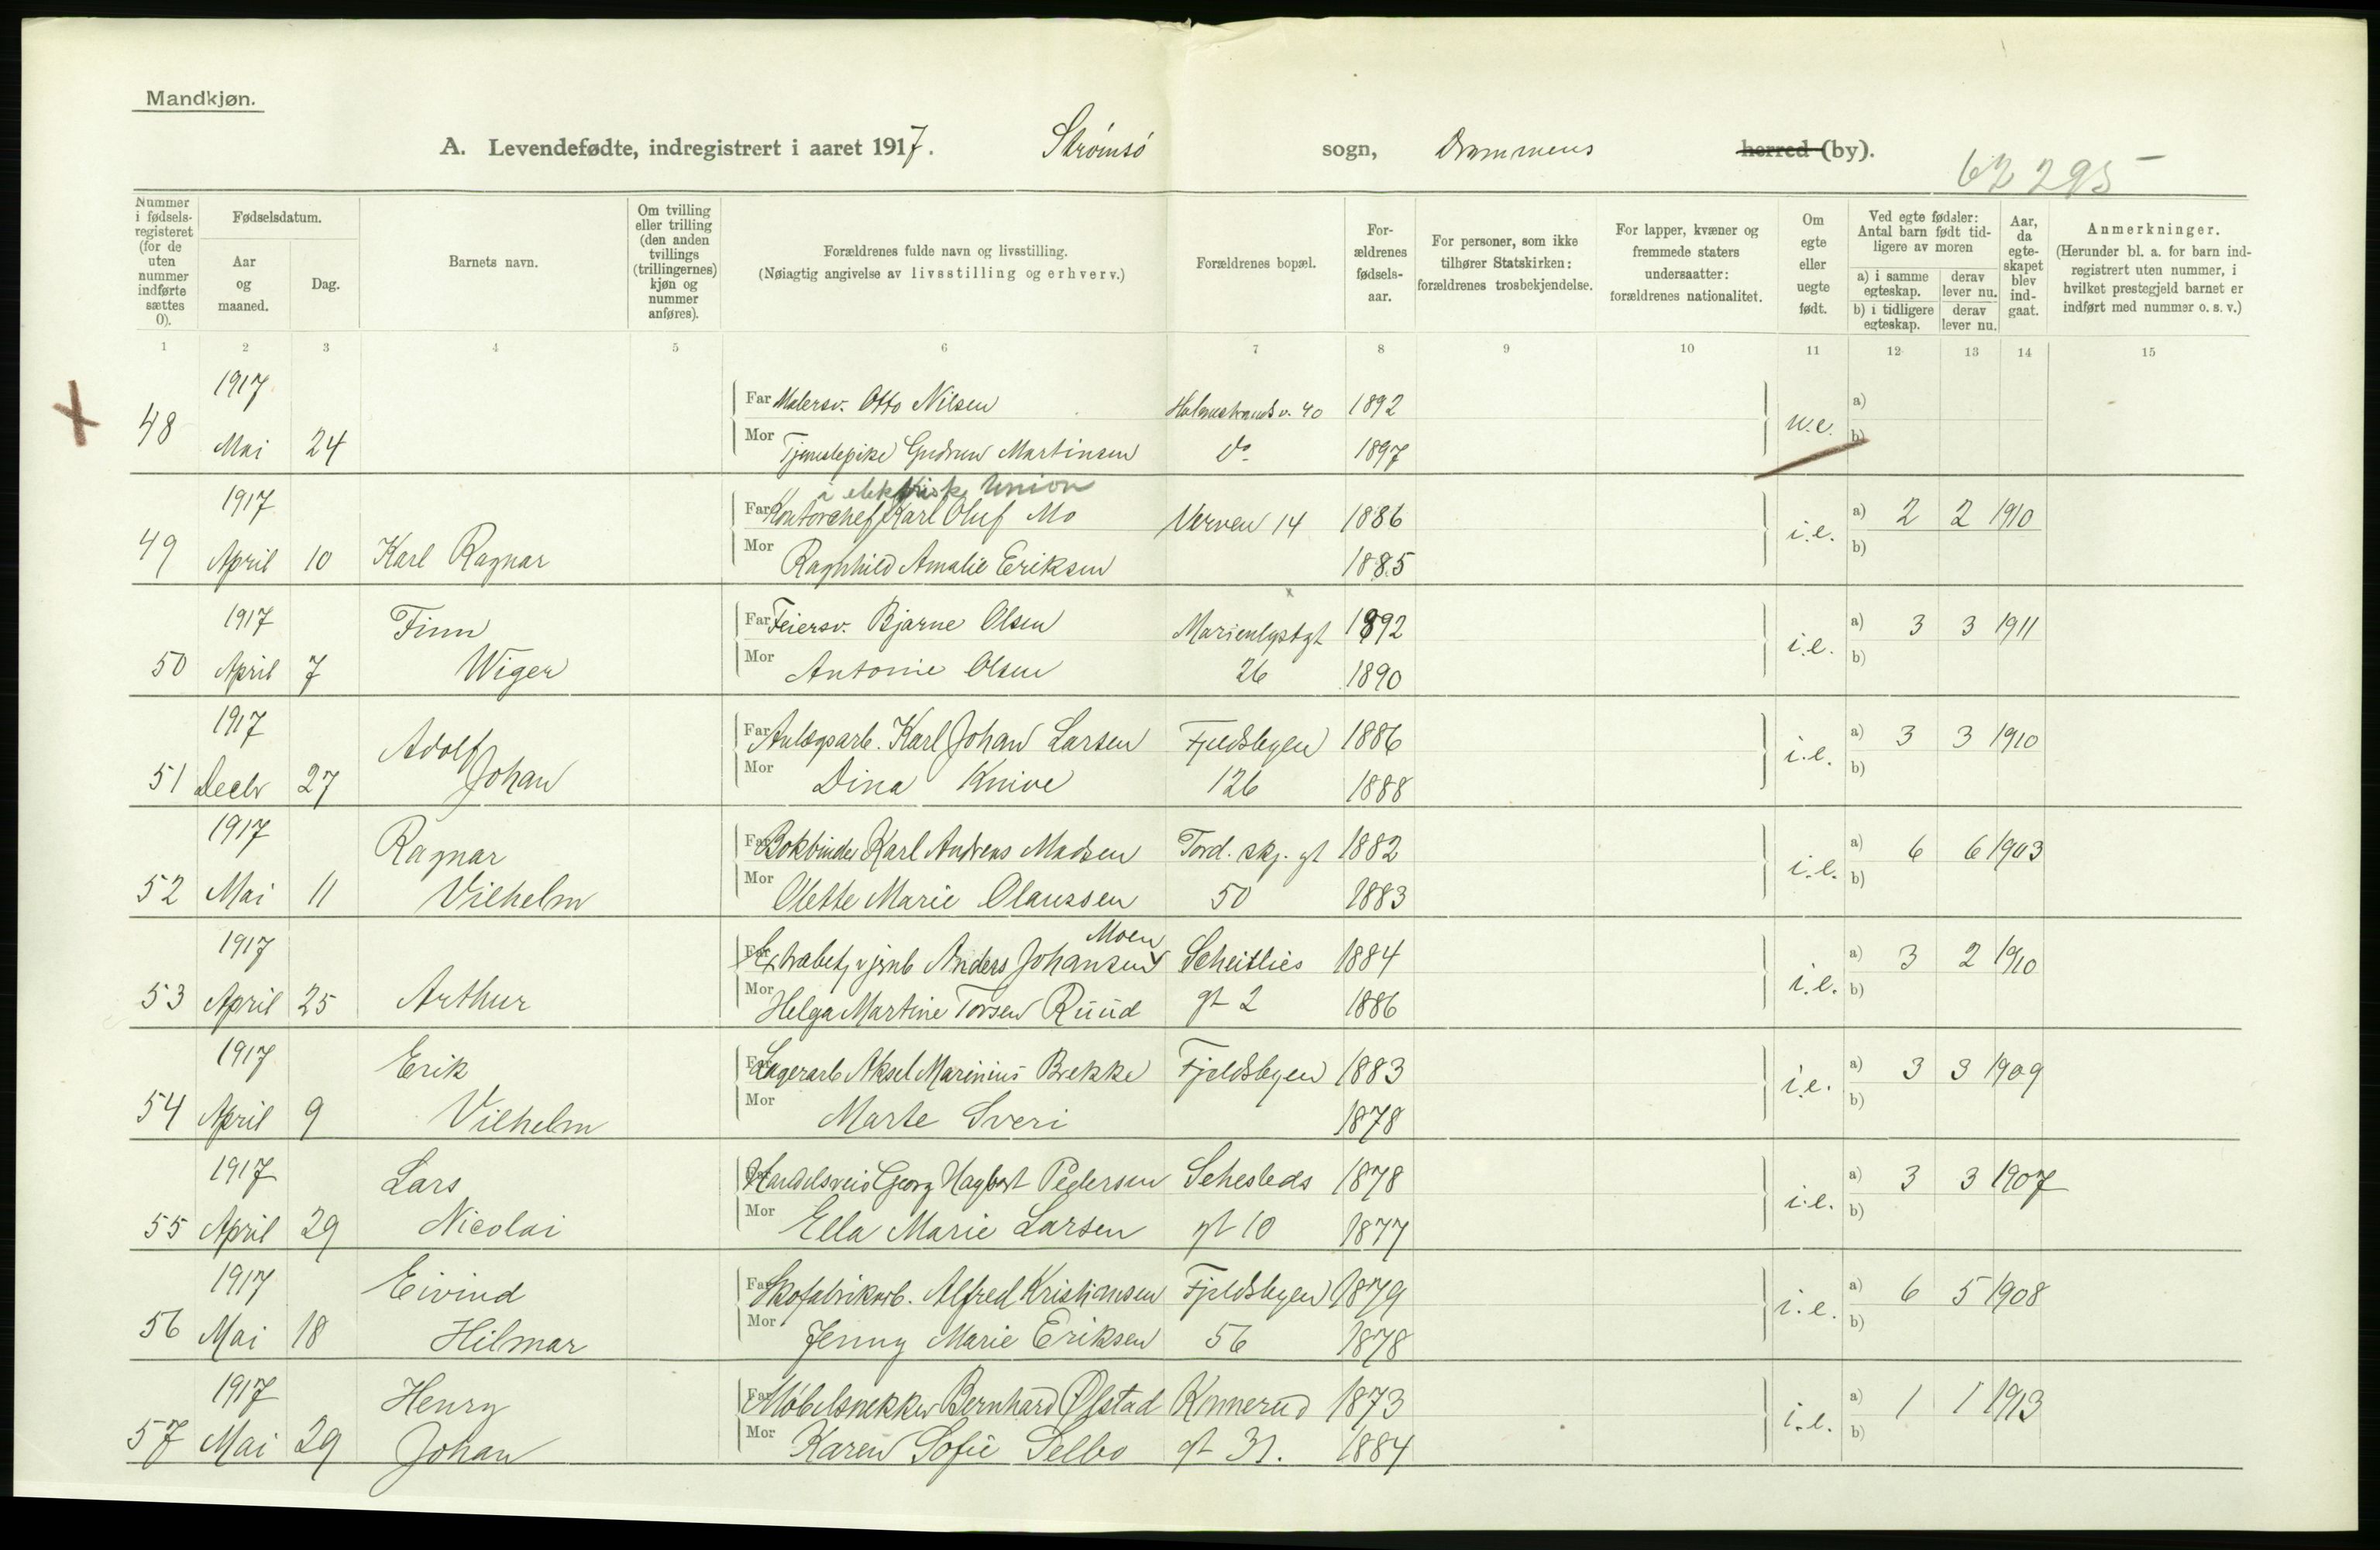 Mandkjøn.
A. Levendefødte, indregistrert i aaret 1917. Strømsø sogn, Drammens herred (by).
62 295
Nummer i fødsels-registeret (for de uten nummer indførte sættes 0).
Fødselsdatum.
Aar og maaned.
Dag.
Barnets navn.
Om tvilling eller trilling (den anden tvillings (trillingernes) kjøn og nummer anføres).
Forældrenes fulde navn og livsstilling.
(Nøiagtig angivelse av livsstilling og erhverv.)
Forældrenes bopæl.
For-ældrenes fødsels-aar.
For personer, som ikke tilhører Statskirken: forældrenes trosbekjendelse.
For lapper, kvæner og fremmede staters undersaatter: forældrenes nationalitet.
Om egte eller uegte født.
Ved egte fødsler: Antal barn født tid-ligere av moren
a) i samme egteskap. derav lever nu.
b) i tidligere egteskap. derav lever nu.
Aar, da egte-skapet blev ind-gaat.
Anmerkninger.
(Herunder bl. a. for barn ind-registrert uten nummer, i hvilket prestegjeld barnet er indført med nummer o. s. v.)
1 2 3 4 5 6 7 8 9 10 11 12 13 14 15
1917 Far Malersv. Otto Nilsen Holmestrands v. 40 1892 a)
48 Mai 24 Mor Tjenestepike Gudrun Martinsen Do 1897 u.e. b)
i elektriske Union
1917 Far Kontorchef Karl Oluf Mo Verven 14 1886 a) 2 2 1910
49 April 10 Karl Ragnar Mor Raghhild Amalie Eriksen 1885 i.e. b)
1917 Finn Far Feiersv. Bjarne Olsen Marienlystgt 1892 a) 3 3 1911
50 April 7 Wiger Mor Antonie Olsen 26 1890 i.e. b)
1917 Adolf Far Anlægsarb. Karl Johan Larsen Fjeldsbyen 1886 a) 3 3 1910
51 Decbr 27 Johan Mor Dina Knive 126 1888 i.e. b)
1917 Ragnar Far Bokbinder Karl Andreas Madsen Tord. skj. gt 1882 a) 6 6 1903
52 Mai 11 Vilhelm Mor Olette Marie Olaussen 50 1883 i.e. b)
Moen
1917 Far Extrabetj v jrnb Anders Johansen Scheitlies 1884 a) 3 2 1910
53 April 25 Arthur Mor Helga Martine Torsen Ruud gt 2 1886 i.e. b)
1917 Erik Far Lagerarb Aksel Marinius Brekke Fjeldsbyen 1883 a) 3 3 1909
54 April 9 Vilhelm Mor Marte Sveri 1878 i.e. b)
1917 Lars Far Handelsreis Georg Hagbart Pedersen Sehesteds 1878 a) 3 3 1907
55 April 29 Nicolai Mor Ella Marie Larsen gt 10 1877 i.e. b)
1917 Eivind Far Skofabrikarb. Alfred Kristiansen Fjeldsbyen 1879 a) 6 5 1908
56 Mai 18 Hilmar Mor Jenny Marie Eriksen 56 1878 i.e. b)
1917 Henry Far Møbelsnekker Bernhard Ølstad Konnerud 1873 a) 1 1 1913
57 Mai 29 Johan Mor Karen Sofie Selbo gt 31. 1884 i.e. b)